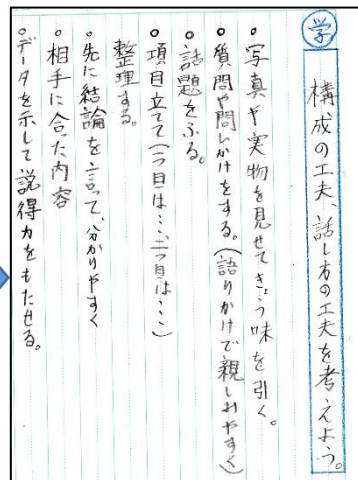 学
構成の工夫、話し方の工夫を考えよう。
○写真や実物を見せてきょう味を引く。
○質問や問いかけをする。(語りかけで親しみやすく)
○話題をふる。
○項目立てて(一つ目は…二つ目は…)
整理する。
○先に結論を言って、分かりやすく
○相手に合った内容
○データを示して説得力をもたせる。